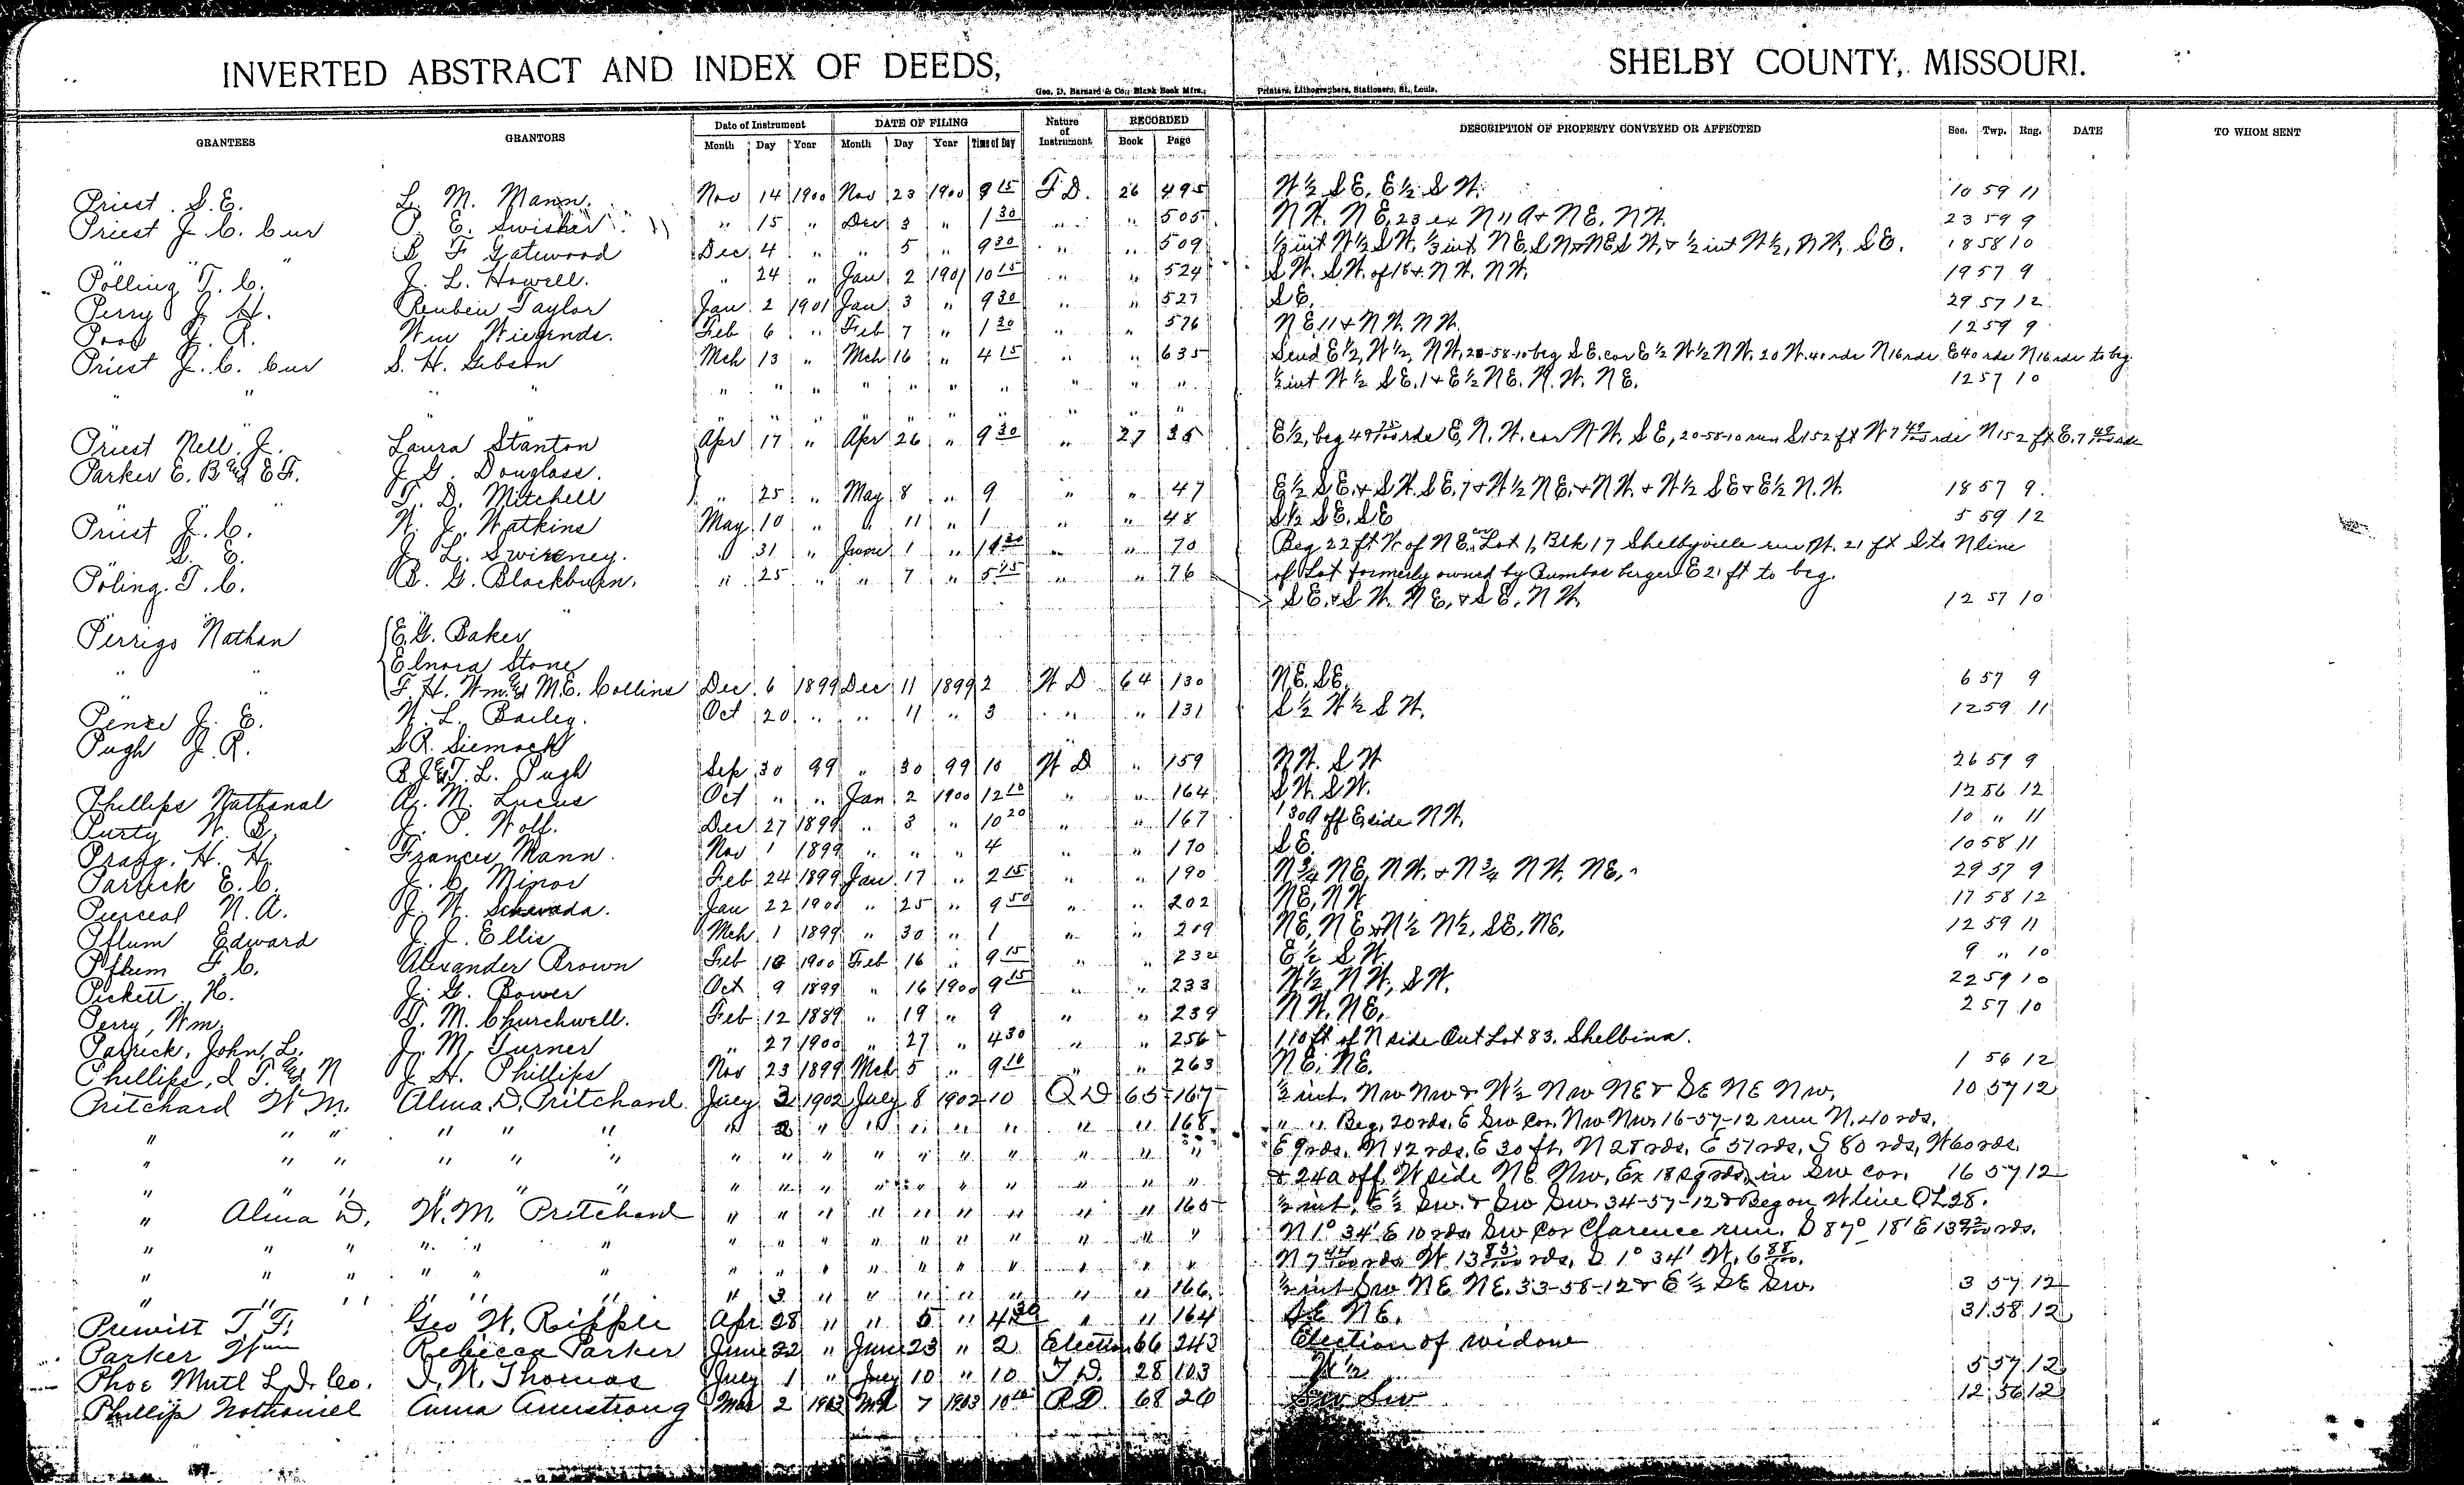 INVERTED ABSTRACT AND INDEX OF DEEDS, SHELBY COUNTY, MISSOURI.
Geo. D. Barnard & Co., Blank Book Mfrs., Printers, Lithographers, Stationers, St. Louis.
GRANTEES GRANTORS Date of Instrument DATE OF FILING Nature of Instrument RECORDED DESCRIPTION OF PROPERTY CONVEYED OR AFFECTED Sec. Twp. Rng. DATE TO WHOM SENT
Month Day Year Month Day Year Time of Day Book Page
Priest S. E. L. M. Mann. Nov 14 1900 Nov 23 1900 9 15 T D. 26 495 W½ S E, E½ S W. 10 59 11
Priest J. C. Cur P. E. Swisher " 15 " Dec 3 " 1 30 " " 505 N W. N E, 23 ex N 11 a + N E. N W. 23 59 9
" " B F Gatewood Dec 4 " " 5 " 9 30 " " 509 ½ int W½ S W, ½ int N E, S W + N E S W, + ½ int W½, N W, S E. 18 58 10
Polling T. C. J. L. Howell. " 24 " Jan 2 1901 10 15 " " 524 S W. S W. of 18 + N W. N W. 19 57 9
Perry J. H. Reuben Taylor Jan 2 1901 Jan 3 " 9 30 " " 527 S E. 29 57 12
Pool J. R. Wm Wiegends. Feb 6 " Feb 7 " 1 30 " " 576 N E 11 + N W. N W. 12 59 9
Priest J. C. Cur S. H. Gibson Mch 13 " Mch 16 " 4 15 " " 635 S end E½, W½, N W, 20-58-10 beg S E. cor E½ W½ N W. 20 W. 40 rds N 16 rds E 40 rds N 16 rds to beg.
" " " " " " " " " " " " " " ½ int W½ S E. 1 + E½ N E. N. W. N E. 12 57 10
" " " " " " " " "
Priest Nell J. Laura Stanton Apr 17 " Apr 26 " 9 30 " 27 35 E½, beg 49 rds E, N. W. cor N W, S E, 20-58-10 run S 152 ft W 7 49/100 rds N 152 ft E. 7 49/100 rds
Parker E. B. & E F. J. G. Douglass.
" T. D. Mitchell " 25 " May 8 " 9 " " 47 E½ S E. + S W. S E. 7 + W½ N E. + N W. + W½ S E + E½ N. W. 18 57 9
Priest J. C. W. J. Watkins May 10 " " 11 " 1 " " 48 S½ S E. S E 5 59 12
" S. E. J. L. Swireney. " 31 " June 1 " " " 70 Beg 22 ft W of N E. cor Lot 1, Blk 17 Shelbyville run W. 21 ft S to N line
Poling. T. C. B. G. Blackburn. " 25 " " 7 " " " 76 of Lot formerly owned by E 21 ft to beg.
" " S E. + S W. N E. + S E. N W. 12 57 10
Perrigo Nathan E. G. Baker
" " Elnora Stone
" " F. H. Wm. & M. E. Collins Dec 6 1899 Dec 11 1899 2 W D 64 130 N E. S E. 6 57 9
Pence J. E. W. L. Bailey. Oct 20 " " 11 " 3 " " 131 S½ W½ S W. 12 59 11
Pugh J. R. S R. Siemock
B. J. & T. L. Pugh Sep 30 99 " 30 99 10 W D " 159 N W. S W 26 59 9
Phillips Nathanal A. M. Lucus Oct " " Jan 2 1900 12 10 " " 164 S W. S W. 12 56 12
Purty W. B. J. P. Wolf. Dec 27 1899 " 3 " 10 20 " " 167 130 a off E side N W. 10 " 11
Pragg. H. H. Frances Mann. Nov 1 1899 " " " 4 " " 170 S E. 10 58 11
Parrick E. C. J. C. Minor Feb 24 1899 Jan 17 " 2 15 " " 190 N¾ N E, N W. + N¾ N W. N E. 29 57 9
Purceal N. A. J. W. Schwada. Jan 22 1900 " 25 " 9 50 " " 202 N E, N W 17 58 12
Pflum Edward J. J. Ellis Mch 1 1899 " 30 " 1 " " 209 N E, N E + N½ N½, S E, N E, 12 59 11
Pflum F. C. Alexander Brown Feb 1900 Feb 16 " 9 15 " " 232 E½ S W. 9 " 10
Pickett H. J. G. Bower Oct 9 1899 " 16 1900 9 15 " " 233 W½, N W, S W. 22 59 10
Perry, Wm. T. M. Churchwell. Feb 12 1889 " 19 " 9 " " 239 N W. N E, 2 57 10
Patrick, John, L. J. M. Turner " 27 1900 " 27 " 4 30 " " 256 110 ft of N side Out Lot 83. Shelbina.
Phillips, I T. & N J. H. Phillips Nov 23 1899 Mch 5 " 9 10 " " 263 N E. N E. 1 56 12
Pritchard W M. Alma D. Pritchard July 2 1902 July 8 1902 10 Q D 65 167 ½ int. Nw Nw & W½ Nw NE & SE NE Nw. 10 57 12
" " " " " " " 2 " " " " " " " 168 " " Beg. 20 rds. E Sw cor. Nw Nw. 16-57-12 run N. 40 rds.
" " " " " " " " " " " " " " " " E 9 rds. N 12 rds. E 30 ft. N 28 rds. E 51 rds. S 80 rds, W 60 rds.
" " " " " " " " " " " " " " " " & 24a off W side NE Nw. Ex 18 sq rds in Sw cor. 16 57 12
" Alma D. W. M. Pritchard " " " " " " " " " 165 ½ int. E½ Sw. & Sw Sw. 34-57-12 & Beg on W line O L 28.
" " " " " " " " " " " " " " " " N 1° 34' E 10 rds. Sw cor Clarence run. S 87° 18' E rds.
" " " " " " " " " " " " " " " " N 7 44/100 rds W. 13 85/100 rds, S 1° 34' W. 6 88/100.
" " " " " " " 3 " " " " " " " 166. ½ int Sw NE NE. 33-58-12 & E½ SE Sw. 3 57 12
Prewitt T. F. Geo W. Ripple Apr 28 " " 5 " 4 30 " " 164 SE NE. 31 58 12
Parker Wm Rebecca Parker June 22 " June 23 " 2 Election 66 243 Election of widow
Phoe Mutl L I. Co. I. N. Thomas July 1 " July 10 " 10 T D. 28 103 W½ 5 57 12
Phillip Nathaniel Anna Armstrong Mar 2 1903 Mch 7 1903 10 68 26 Sw Sw 12 56 12